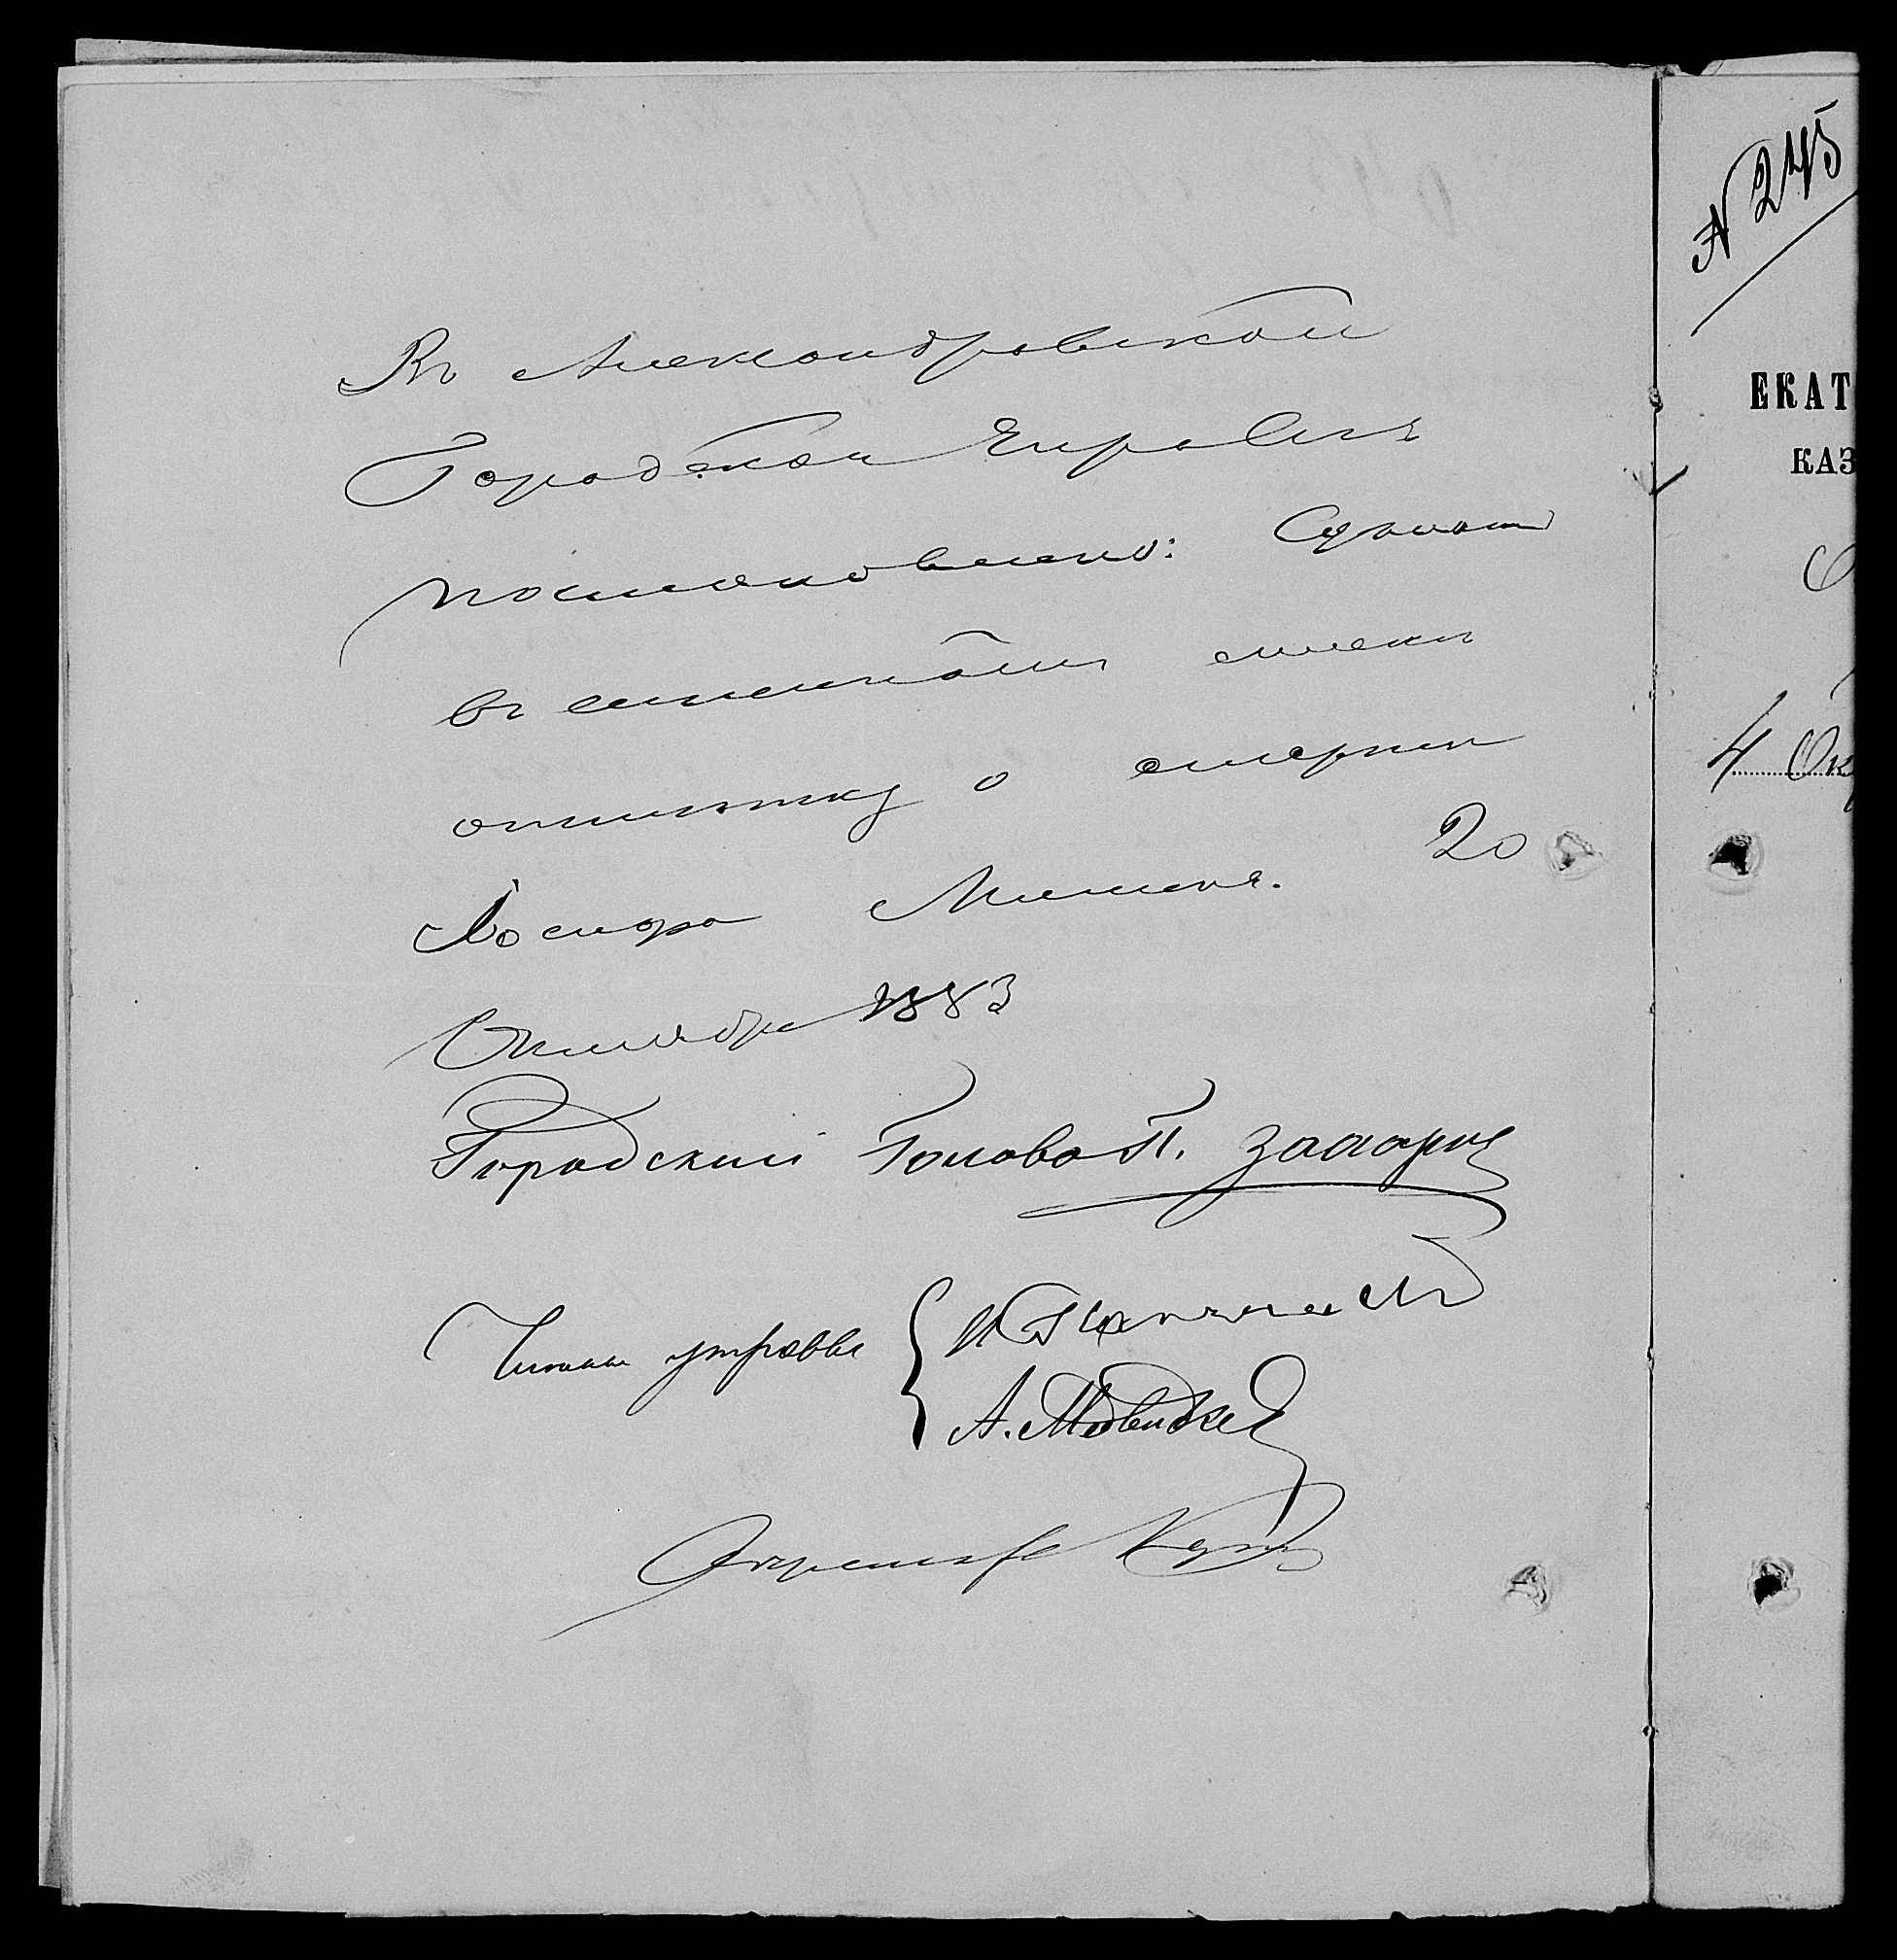 Въ Александровской
Городской Управѣ
постановлено: Сделать
въ семейномъ списке
отметку о смерти
20
Октября 1883
Городской Голова П. Захарин
Члены управы
А. Медведев
Секретарь
N 245
ЕКАТ
КАЗ
4 Ок